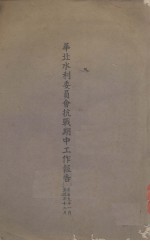 華北水利委員會抗戰期中工作報告